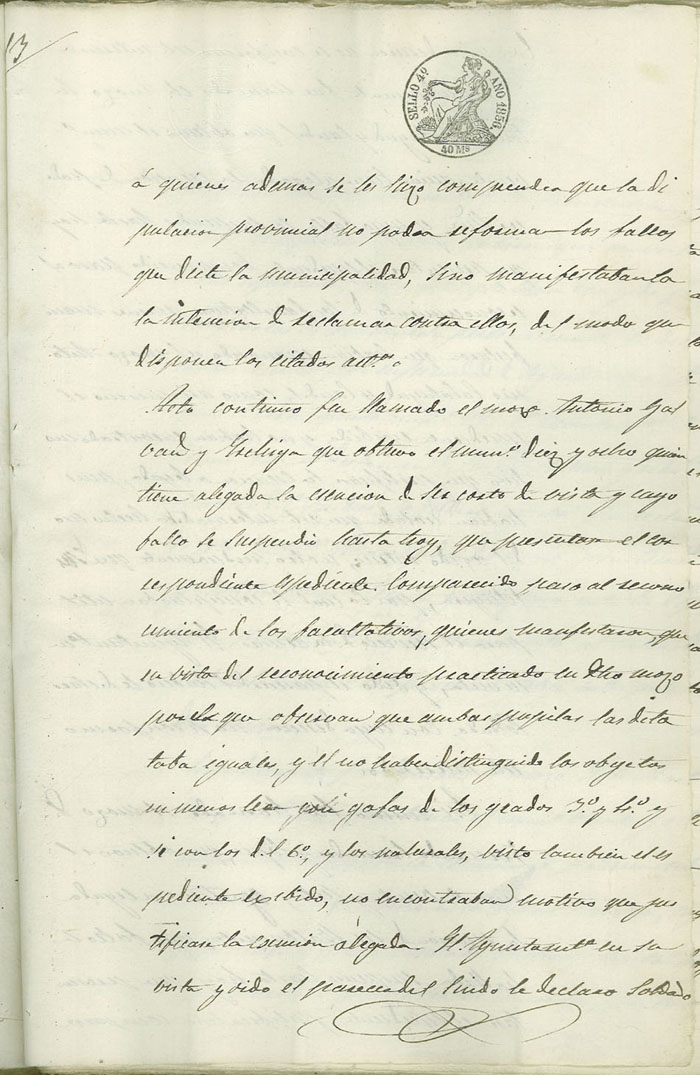 13
SELLO 4º AÑO 1850.
40 Ms
á quienes ademas se les hizo comprender que la di
putacion provincial no podra reformar los fallos
que dicte la municipalidad, sino manifestaban la
la intencion de reclamar contra ellos, del modo que
disponen los citados artos.
Acto continuo fue llamado el mozo Antonio Gal
van y que obtuvo el numº diez y ocho quien
tiene alegada la esencion de ser corto de vista y cuyo
fallo se suspendió hasta hoy, que presentase el cor
respondiente espediente. Comparecido paso al recono
cimiento de los facultativos, quienes manifestaron que
en vista del reconocimiento practicado en dho mozo
por el que observan que ambas pupilas las dila
taba iguales, y él no haber distinguido los objetos
ni menos leer con gafas de los grados 3º y 4º y
si con las del 6º, y las naturales, visto tambien el es
pediente exibido, no encontraban motivo que jus
tificase la esencion alegada. El Ayuntamtº en su
vista y oido el parecer del Sindo le declaro Soldado